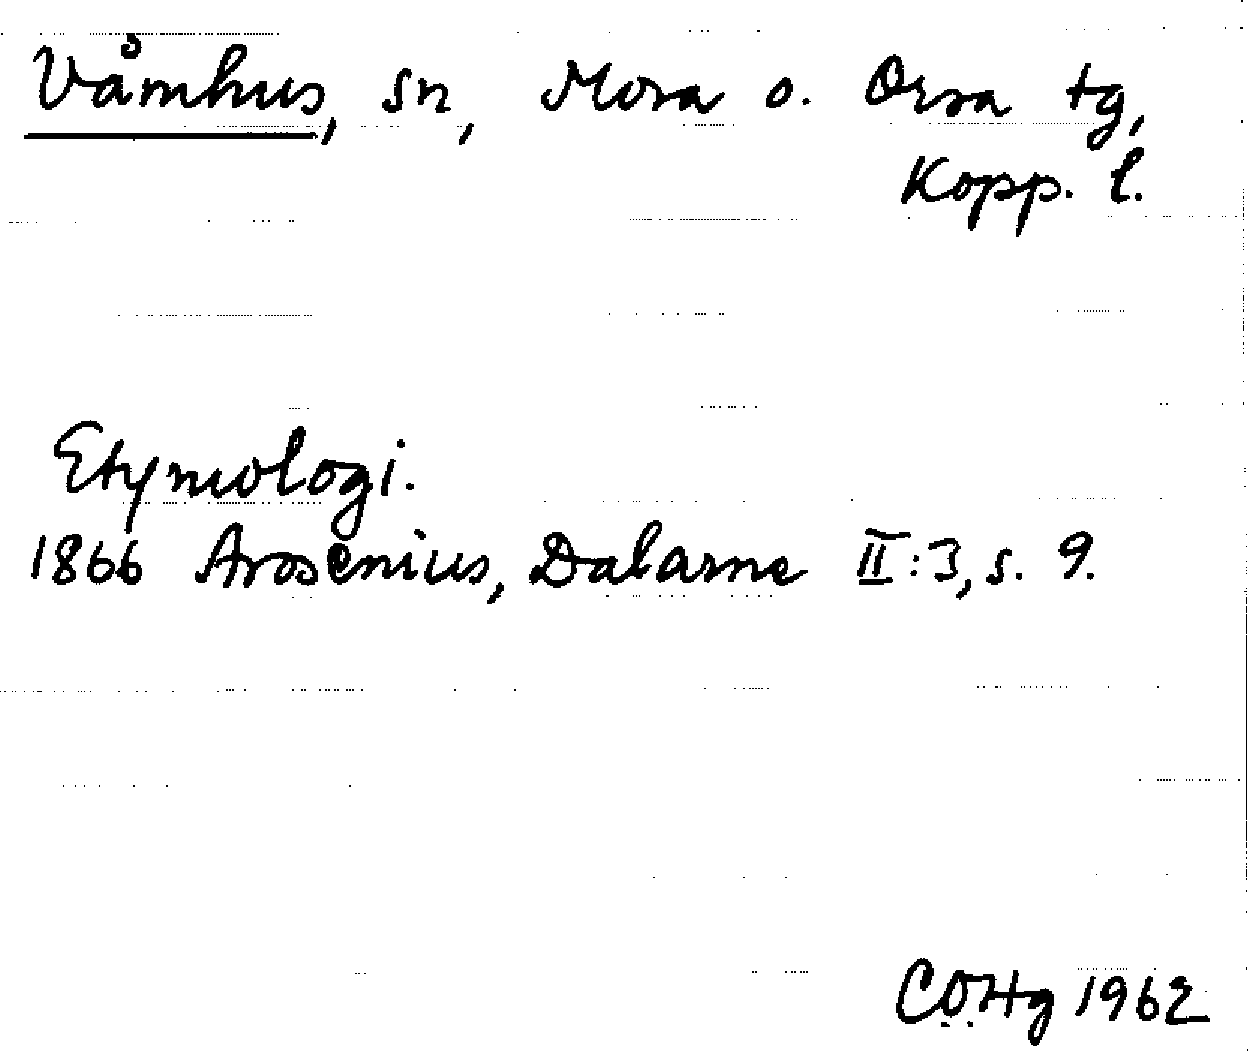 Våmhus, sn, Mora o. Orsa tg,
Kopp. l.
Etymologi.
1866 Arosenius, Dalarne II:3, s. 9.
COHg 1962